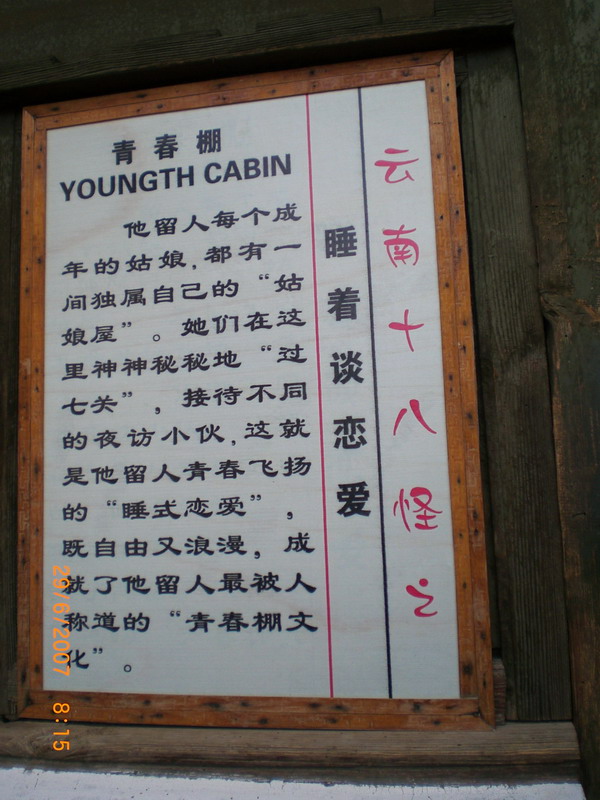 青春棚
YOUNGTH CABIN
他留人每个成
年的姑娘,都有一
间独属自己的“姑
娘屋”。她们在这
里神神秘秘地“过
七关”,接待不同
的夜访小伙,这就
是他留人青春飞扬
的“睡式恋爱”,
既自由又浪漫,成
就了他留人最被人
称道的“青春棚文
化”。
睡着谈恋爱
云南十八怪之
29/6/2007 8:15